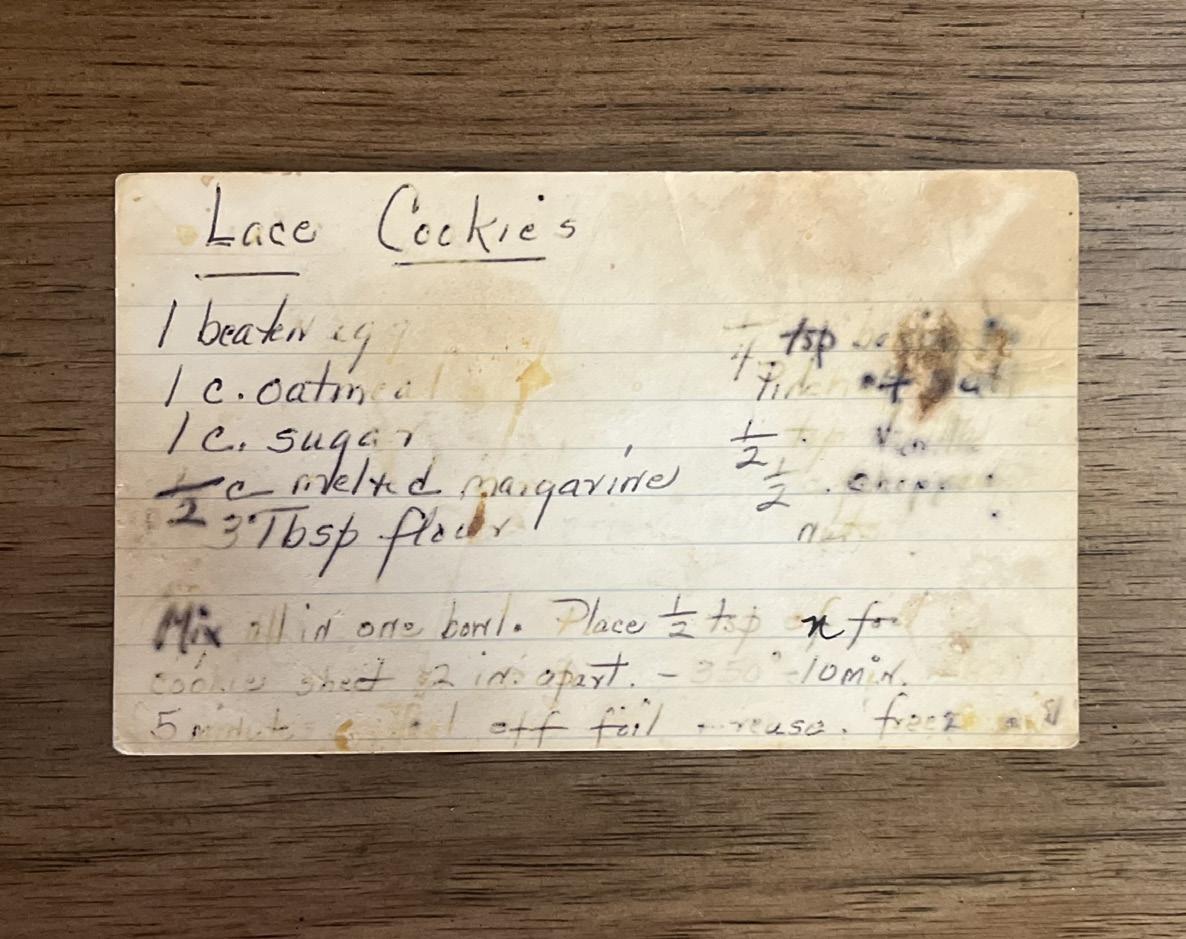 Lace Cookie's
1 beaten egg
1 c. oatmeal
1 c. sugar
1/2 c melted margarine
3 Tbsp flour
1/4 tsp
Pinch of salt
1/2 tsp
1/2 chopped
nuts
Mix all in one bowl. Place 1/2 tsp on foil
cookie sheet 2 in. apart. - 350° - 10 min.
5 off foil + reuse.